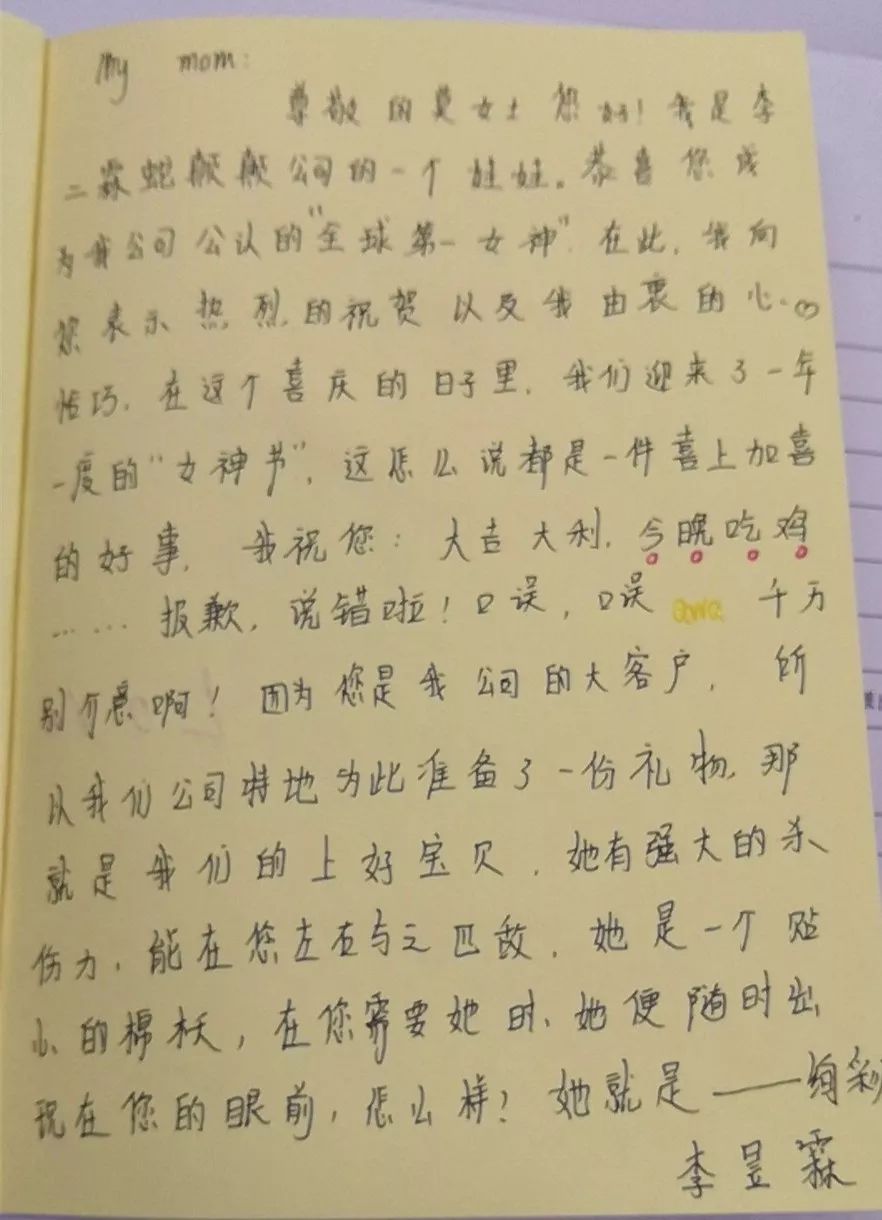 My mom:
尊敬的莫女士您好！我是李
二霖蛇艘艘公司的一个娃娃。恭喜您成
为我公司公认的"全球第一女神"在此，我向
您表示热烈的祝贺以及我由衷的心♡
恰巧，在这个喜庆的日子里，我们迎来了一年
一度的"女神节"，这怎么说都是一件喜上加喜
的好事，我祝您：大吉大利，今晚吃鸡
…… 报歉，说错啦！口误，口误 QWQ 千万
别介意啊！因为您是我公司的大客户，所
以我们公司特地为此准备了一份礼物，那
就是我们的上好宝贝，她有强大的杀
伤力，能在您左右与之匹敌，她是一个贴
心的棉袄，在您需要她时，她便随时出
现在您的眼前，怎么样？她就是——绚彩
李昱霖